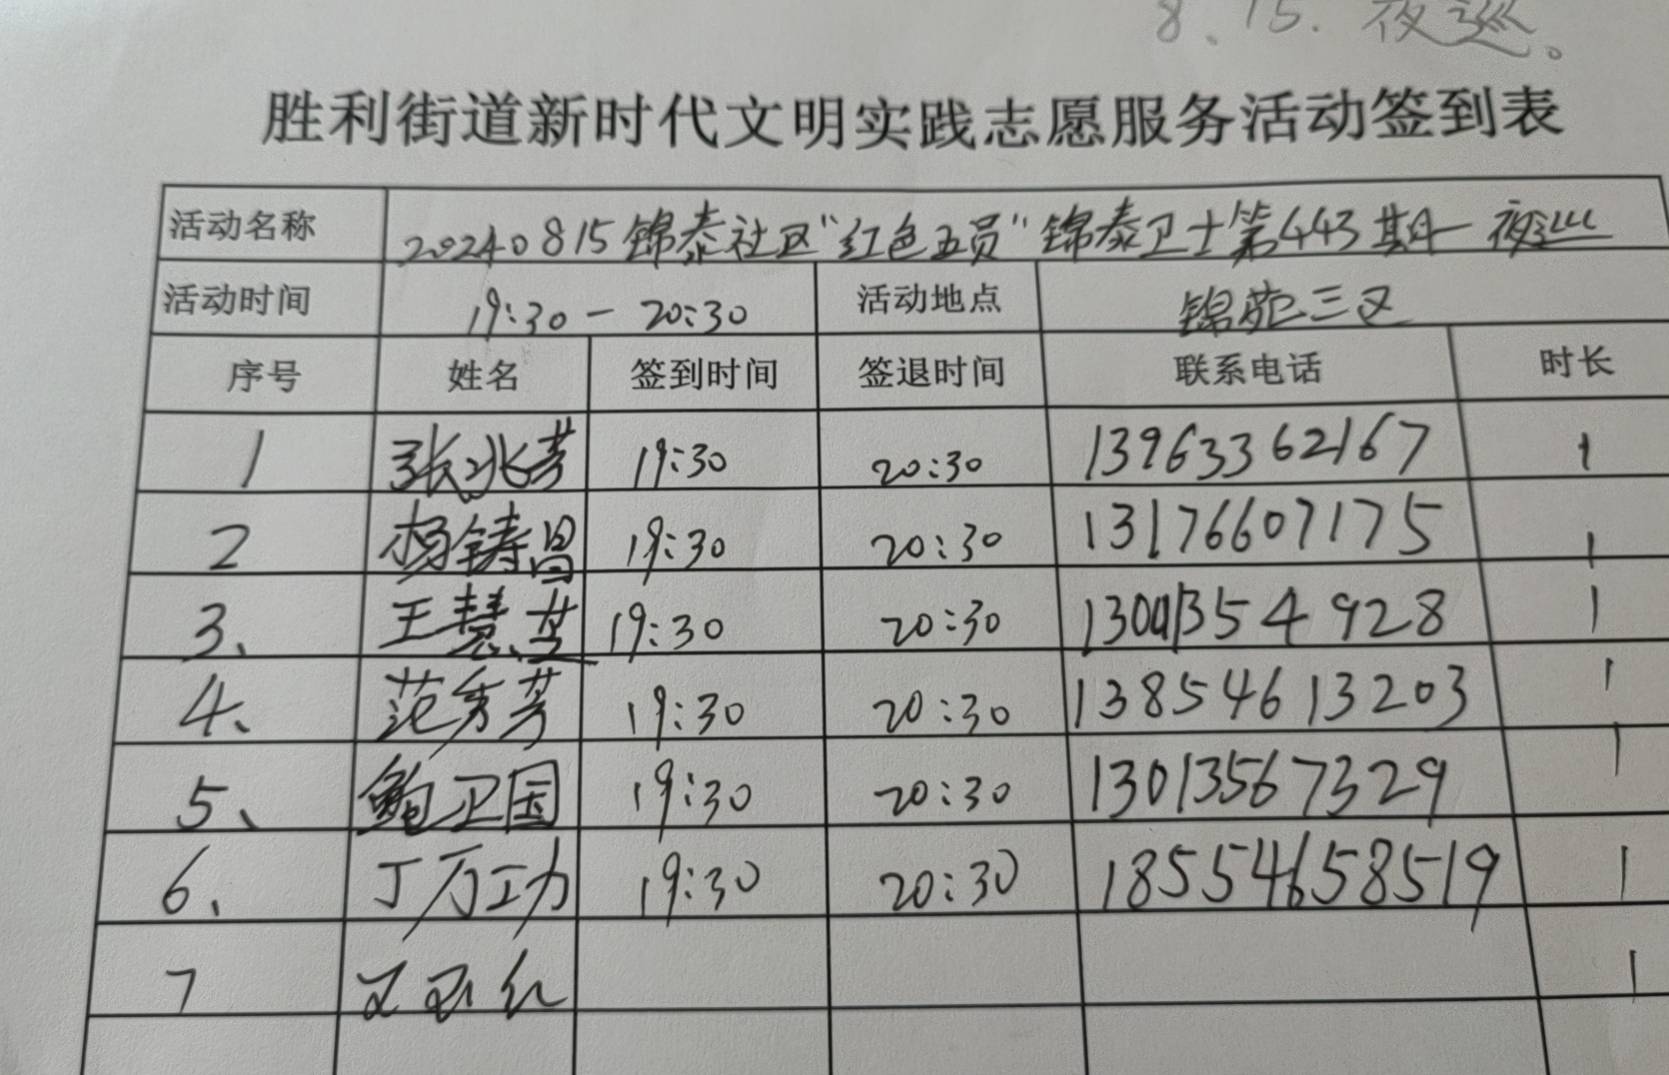 8.15.夜巡。
胜利街道新时代文明实践志愿服务活动签到表
活动名称 20240815锦泰社区“红色五员”锦泰卫士第443期—夜巡
活动时间 19:30—20:30 活动地点 锦苑三区
序号 姓名 签到时间 签退时间 联系电话 时长
1 张兆芳 19:30 20:30 13963362167 1
2 杨铸昌 19:30 20:30 13176607175 1
3、 王慧英 19:30 20:30 1354928 1
4、 范秀芳 19:30 20:30 13854613203 1
5、 鲍卫国 19:30 20:30 13013567329 1
6、 丁万功 19:30 20:30 18554658519 1
7 1